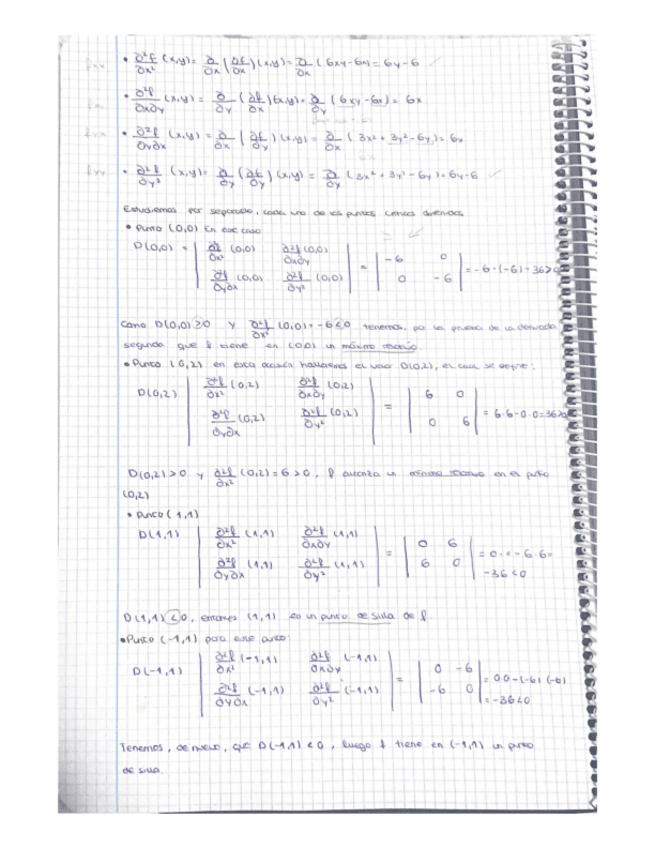 fxx • ∂²f/∂x² (x,y) = ∂/∂x (∂f/∂x)(x,y) = ∂/∂x (6xy-6x) = 6y-6 ✓
• ∂²f/∂x∂y (x,y) = ∂/∂y (∂f/∂x)(x,y) = ∂/∂y (6xy-6x) = 6x
fyx • ∂²f/∂y∂x (x,y) = ∂/∂x (∂f/∂y)(x,y) = ∂/∂x (3x²+3y²-6y) = 6x
fyy • ∂²f/∂y² (x,y) = ∂/∂y (∂f/∂y)(x,y) = ∂/∂y (3x²+3y²-6y) = 6y-6 ✓
Estudiemos por separado, cada uno de los puntos críticos obtenidos
• Punto (0,0) En ese caso
D(0,0) = | ∂²f/∂x² (0,0) ∂²f/∂x∂y (0,0) | = | -6 0 | = -6·(-6) = 36>0
| ∂²f/∂y∂x (0,0) ∂²f/∂y² (0,0) | | 0 -6 |
Como D(0,0)>0 y ∂²f/∂x² (0,0) = -6<0 tenemos, por la prueba de la derivada
segunda que f tiene en (0,0) un máximo
• Punto (0,2) en esta ocasión hallaremos el valor D(0,2), el cual se define:
D(0,2) | ∂²f/∂x² (0,2) ∂²f/∂x∂y (0,2) | = | 6 0 | = 6·6-0·0=36>0
| ∂²f/∂y∂x (0,2) ∂²f/∂y² (0,2) | | 0 6 |
D(0,2)>0 y ∂²f/∂x² (0,2) = 6>0, f alcanza un mínimo en el punto
(0,2)
• Punto (1,1)
D(1,1) | ∂²f/∂x² (1,1) ∂²f/∂x∂y (1,1) | = | 0 6 | = 0·0-6·6=
| ∂²f/∂y∂x (1,1) ∂²f/∂y² (1,1) | | 6 0 | -36<0
D(1,1)<0, entonces (1,1) es un punto de silla de f.
• Punto (-1,1) para este punto:
D(-1,1) | ∂²f/∂x² (-1,1) ∂²f/∂x∂y (-1,1) | = | 0 -6 | = 0·0-(-6)(-6)
| ∂²f/∂y∂x (-1,1) ∂²f/∂y² (-1,1) | | -6 0 | = -36<0
Tenemos, de nuevo, que D(-1,1)<0, luego f tiene en (-1,1) un punto
de silla.